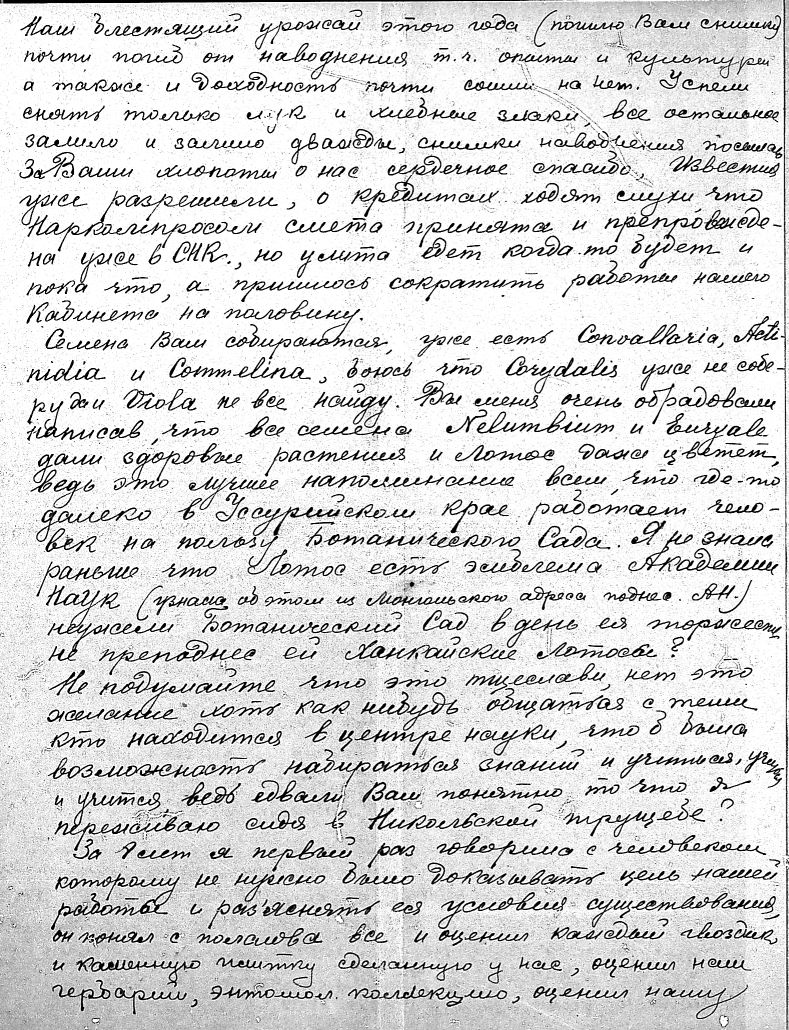 Наш блестящий урожай этого года (пошлю Вам снимки)
почти погиб от наводнения т.ч. опыты и культуры
а также и доходность почти сошли на нет. Успели
снять только лук и хлебные злаки, все остальное
залило и залило дважды, снимки наводнения посылаю
За Ваши хлопоты о нас сердечное спасибо, Известия
уже разрешили, о кредитах ходят слухи что
Наркомпросом смета принята и препровожде-
на уже в СНК., но улита едет когда то будет и
пока что, а пришлось сократить работы нашего
Кабинета на половину.
Семена Вам собираются, уже есть Convallaria, Acti-
nidia и Commelina, боюсь что Corydalis уже не собе-
ру да и Viola не все найду. Вы меня очень обрадовали
написав, что все семена Nelumbium и Euryale
дали здоровые растения и Лотос даже цветет,
ведь это лучшее напоминание всем, что где-то
далеко в Уссурийском крае работает чело-
век на пользу Ботанического Сада. Я не знала
раньше что Лотос есть эмблема Академии
Наук (узнала об этом из Монгольского адреса поднес. АН.)
неужели Ботанический Сад в день ея торжества
не преподнес ей Ханкайские Лотосы?
Не подумайте что это тщеслави, нет это
желание хоть как нибудь общаться с теми
кто находится в центре науки, что б была
возможность набираться знаний и учиться,
и учится, ведь едвали Вам понятно то что я
переживаю сидя в Никольской трущебе?
За 8 лет я первый раз говорила с человеком
которому не нужно было доказывать цель нашей
работы и раз'яснять ея условия существования,
он понял с полслова все и оценил каждый гвоздик
и каменную плитку сделанную у нас, оценил наш
гербарий, энтомол. коллекцию, оценил нашу